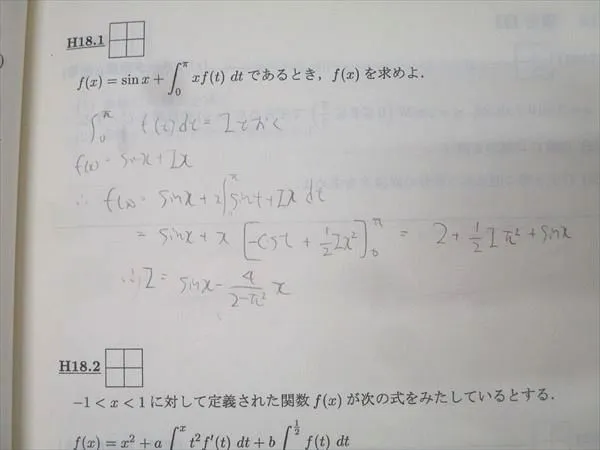 H18.1
f(x) = sin x + ∫₀^π x f(t) dt であるとき，f(x) を求めよ．
∫₀^π f(t)dt = I とおく
f(x) = sinx + Ix
∴ f(x) = sinx + x∫^π sint + Ix dt
= sinx + x [-cost + 1/2 Ix²]₀^π = 2 + 1/2 Iπ² + sinx
∴ I = sinx - 4/(2-π²) x
H18.2
−1 < x < 1 に対して定義された関数 f(x) が次の式をみたしているとする．
f(x) = x² + a ∫^x t² f′(t) dt + b ∫^(1/2) f(t) dt